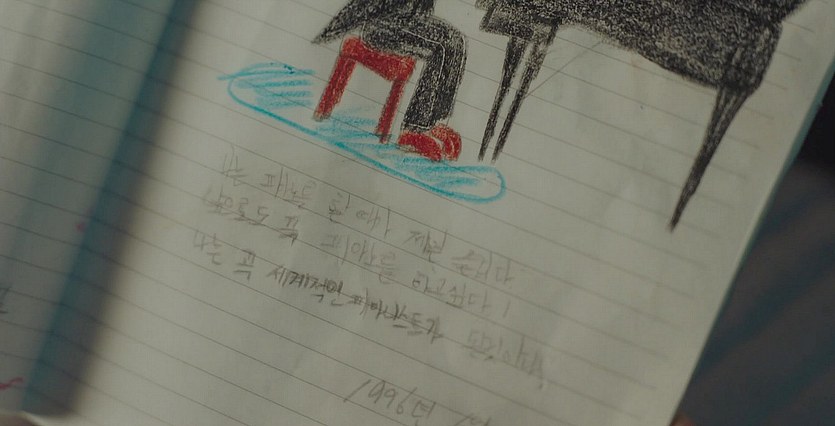 나는 피아노를 칠 때가 제일 즐겁다
앞으로도 꼭 피아노를 하고싶다!
나는 꼭 세계적인 피아니스트가 될것이다.
1996년